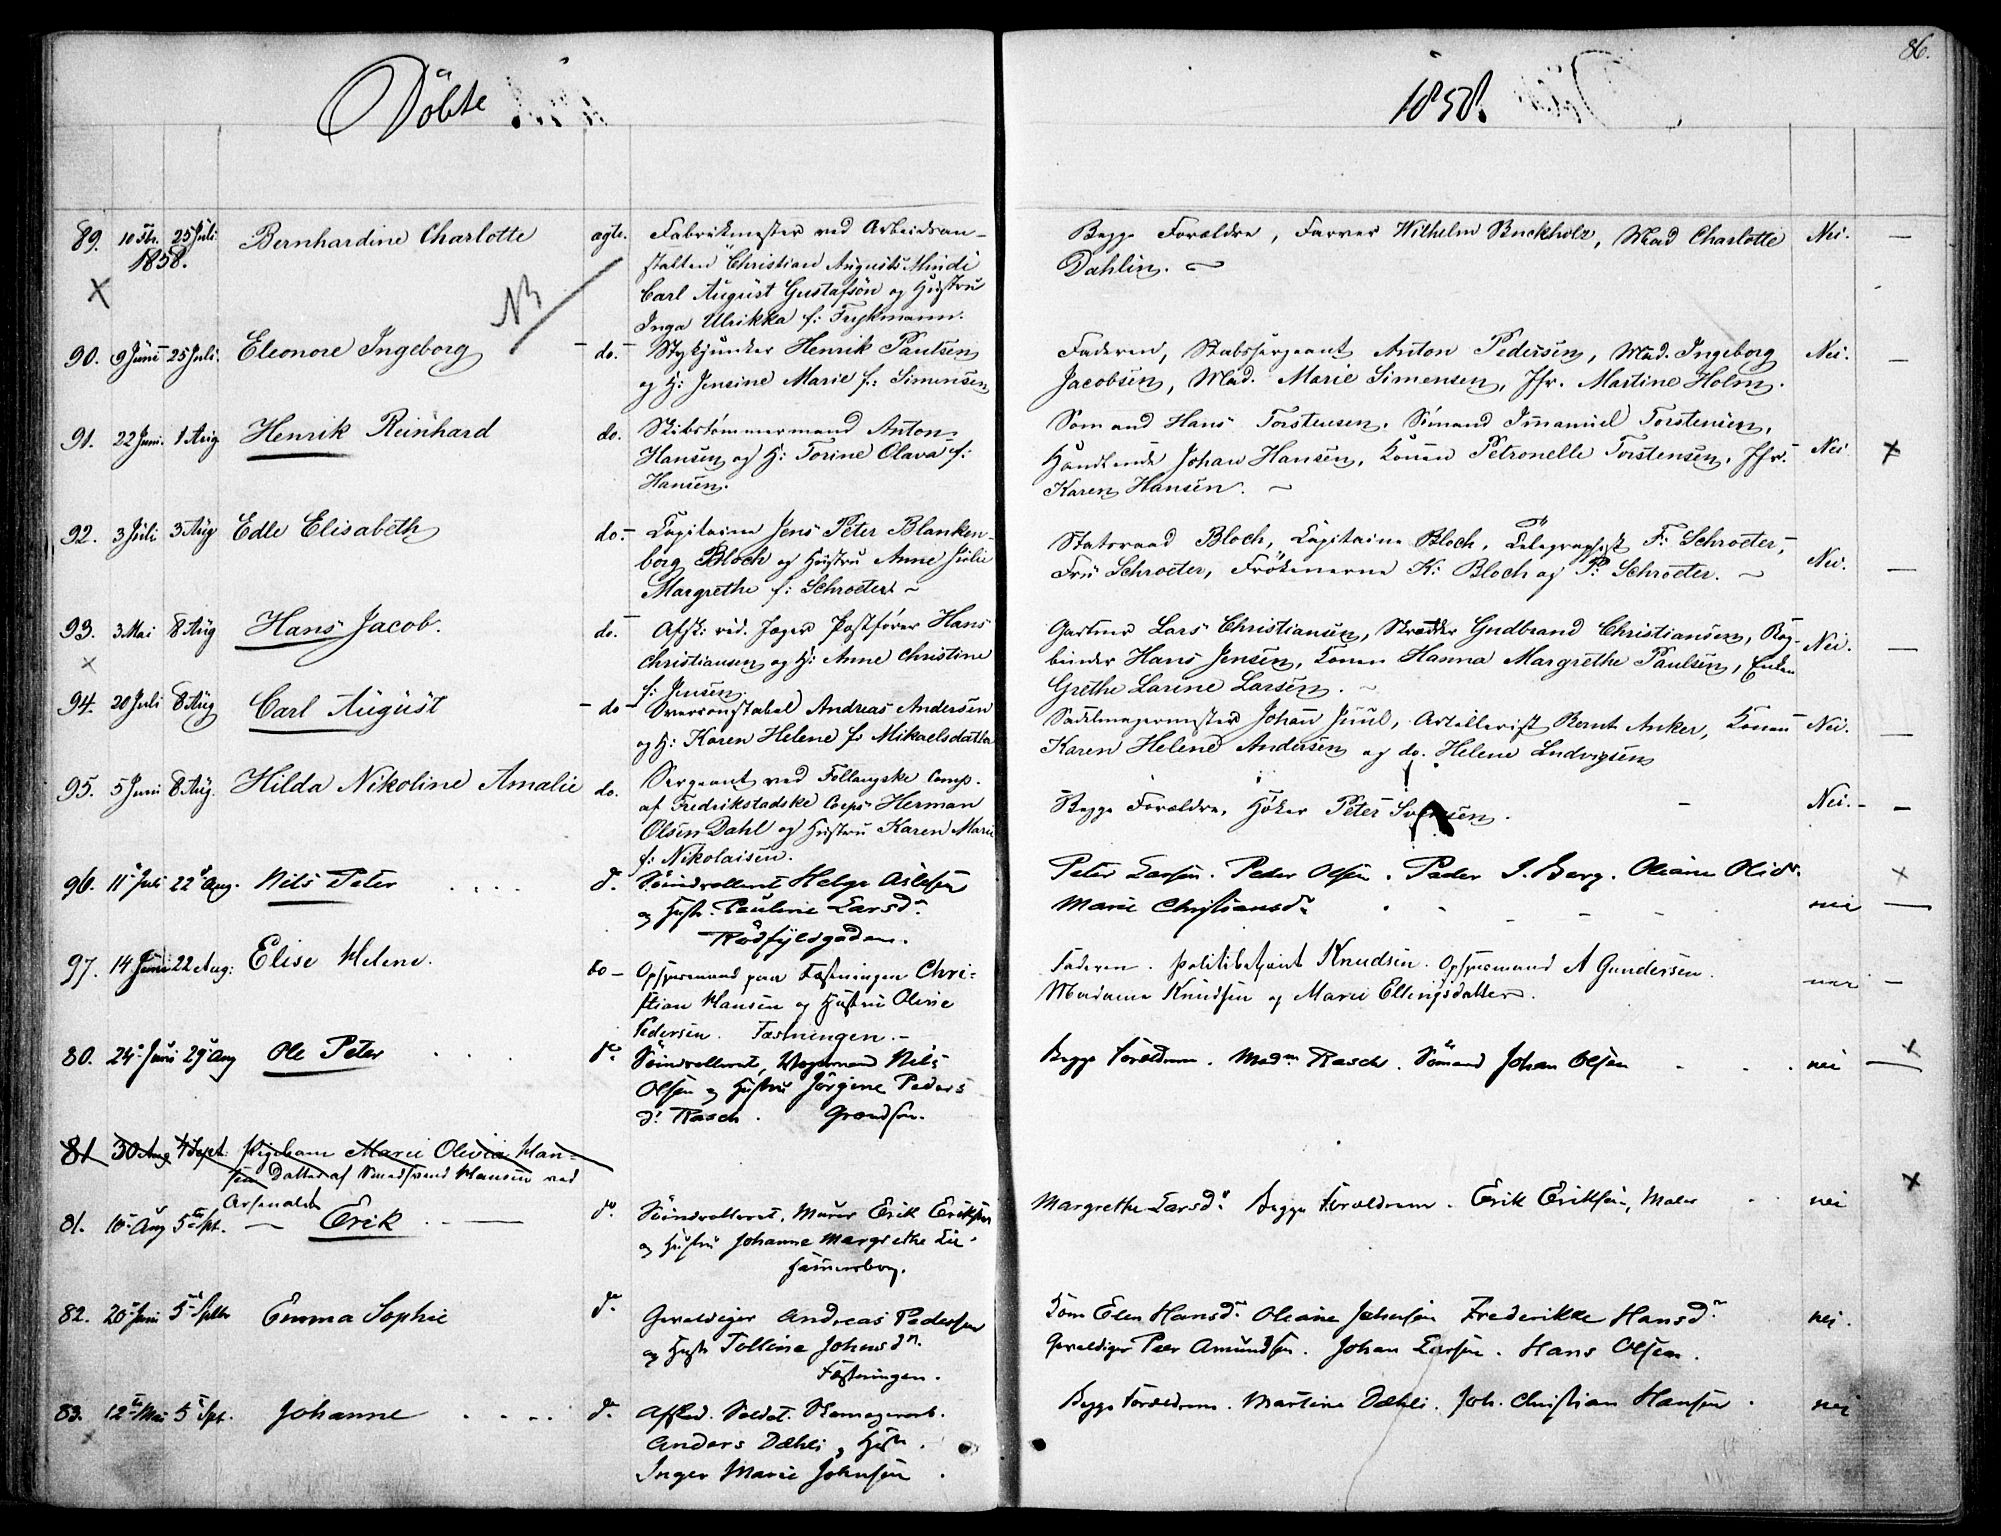 86.
Döbte 1858.
89. 10 Fbr. 1858. 25 Juli Bernhardine Charlotte ægte. Fabrikmester ved Arbeidsan-
stalten Christian Augusts Minde
Carl August Gustafsön og Hustru
Inga Ulrikka f: Frykmann.
Begge Forældre, Farver Wilhelm Buckholz, Mad Charlotte Nei. —
Dahlin.
NB
90. 9 Juni 25 Juli. Eleonore Ingeborg do. Stykjunker Henrik Paulsen
og H: Jensine Marie f: Simensen
Faderen, Stabssergeant Anton Pedersen, Mad. Ingeborg Nei. —
Jacobsen, Mad. Marie Simensen, Jfr. Martine Holm.
91. 22 Juni. 1 Aug Henrik Reinhard do. Skibstømmermand Anton
Hansen og H: Torine Olava f:
Hansen.
Sömand Hans Torstensen, Sömand Imanuel Torstensen,
Johan Hansen, Konen Petronelle Torstensen, Jfr. Nei
Karen Hansen.
92. 3 Juli 3 Aug Edle Elisabeth do. Capitaine Jens Peter Blanken-
borg Bloch og Hustru Anne Julie
Margrethe f: Schroeter
Statsraad Bloch, Capitaine Bloch, Telegraphist F: Schroeter,
Fru Schroeter, Frökenerne K: Bloch og P: Schroeter. Nei. —
93. 3 Mai 8 Aug Hans Jacob. do. Afsk: rid. Jæger Postförer Hans
Christiansen og H: Anne Christine
f: Jensen.
Gartner Lars Christiansen, Skrædder Gudbrand Christiansen, Bog-
binder Hans Jensen, Konen Hanna Margrethe Paulsen, Enken Nei. —
Grethe Larine Larsen.
94. 20 Juli 8 Aug Carl August do Overconstabel Andreas Andersen
og H: Karen Helene f: Mikaelsdatter
Sadelmagermester Johan Juul, Artillerist Bernt Anker, Konen Nei. —
Karen Helene Andersen og do. Helene Ludvigsen
95. 5 Juni 8 Aug. Hilda Nikoline Amalie do. Sergeant ved Follougske Comp.
af Fredrikstadske Corps Herman
Olsen Dahl og Hustru Karen Marie
f: Nikolaisen.
Begge Forældre, Höker Peter Svensen. Nei. —
96. 11 Juli 22 Aug. Nils Peter d. Söindrolleret Helge Aslesen
og Hustr. Pauline Larsdr.
Rödfyldgaden.
Peter Larsen. Peder Olsen. Peder J. Berg. Oleane Olsdr.
Marie Christiansdr. nei —
97. 14 Juni 22 Aug: Elise Helene. do — Opsynsmand paa Fæstningen Chri-
stian Hansen og Hustru Olivie
Pedersen. Fæstningen. —
Faderen. Politibetjent Knudsen. Opsynsmand A Gundersen.
Madame Knudsen og Marie Ellingsdatter. nei —
80. 24 Juni 29 Aug Ole Peter do. Söindrolleret, Nils
Olsen og Hustru Jörgine Peders
d: Rasch. Grændsen.
Begge Forældrene. Madm. Rasch. Sömand Johan Olsen nei —
81 30 Aug 4 Sept: Pigebarn Marie Olivia Han-
sen Datter af Smedsvend Hansen ved
Arsenalet
81. 10 Aug 5 Spt. Erik do. Söindrolleret, Murer Erik Eriksen
og Hustru Johanne Margrethe
Hammersborg.
Margrethe Larsdr. Begge Forældrene. Erik Eriksen, Maler nei
82. 20 Juni 5 Septbr Emma Sophie d. Gevaldiger Andreas Pedersen
og Hustr Tolline Johnsdr.
Fæstningen.
Kone Elen Hansdr. Oleane Johnsen Frederikke Hansdr. nei.
Gevaldiger Peer Amundsen. Johan Larsen. Hans Olsen.
83. 12 Mai 5 Spt. Johanne d. Afsked. Soldat. Skomagerarb.
Anders Dæhli og Hustr.
Inger Marie Johnsen.
Begge Forældrene. Martine Dæhli. Joh. Christian Hansen. nei